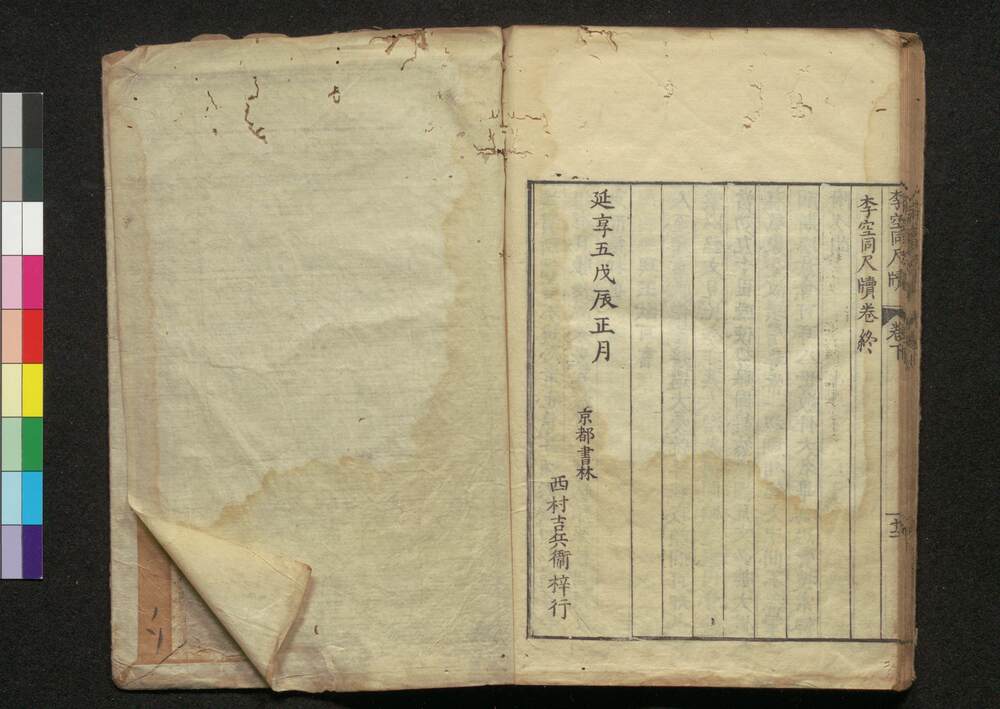 李空同尺牘 卷下
李空同尺牘卷終
延享五戊辰正月
京都書林
西村吉兵衞梓行